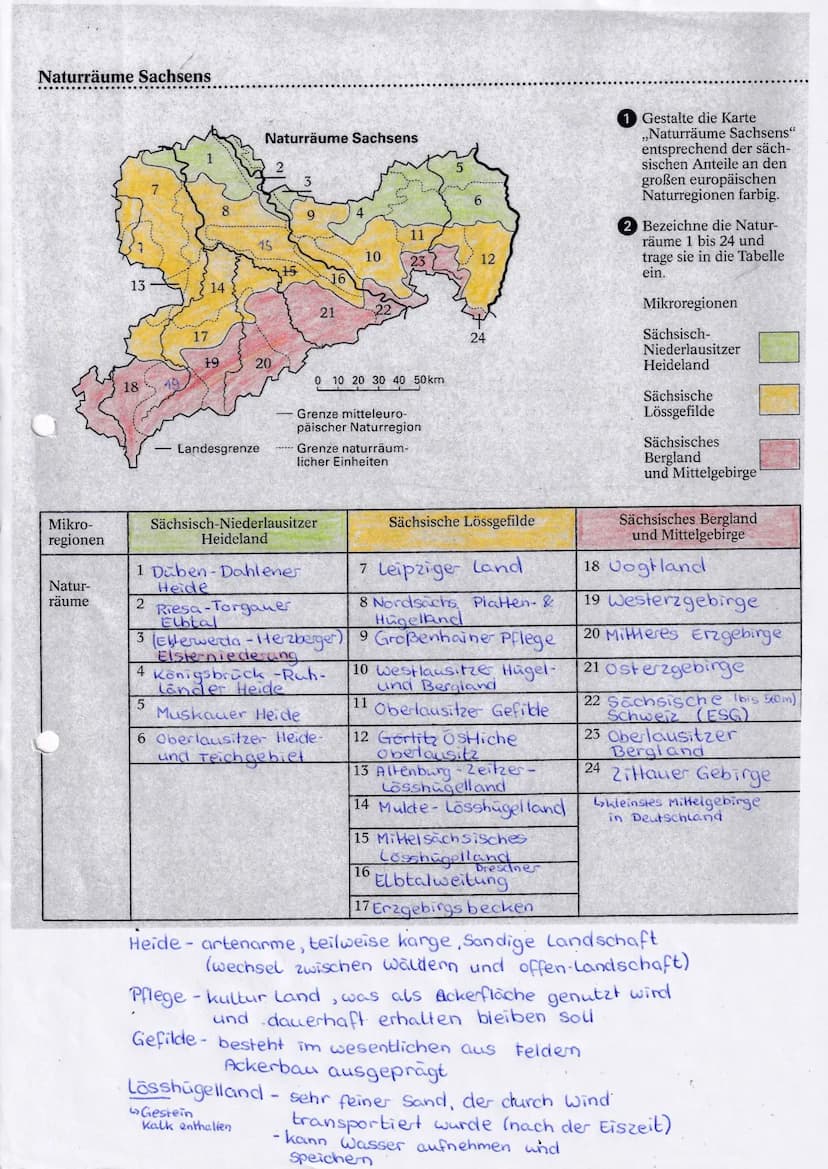 Naturräume Sachsens
Naturräume Sachsens
1 Gestalte die Karte
„Naturräume Sachsens“
entsprechend der säch-
sischen Anteile an den
großen europäischen
Naturregionen farbig.
2 Bezeichne die Natur-
räume 1 bis 24 und
trage sie in die Tabelle
ein.
Mikroregionen
Sächsisch-
Niederlausitzer
Heideland
Sächsische
Lössgefilde
Sächsisches
Bergland
und Mittelgebirge
1
2
3
4
5
6
7
8
9
10
11
12
13
14
15
15
16
17
18
19
19
20
21
22
23
24
0 10 20 30 40 50 km
Grenze mitteleuro-
päischer Naturregion
Landesgrenze
Grenze naturräum-
licher Einheiten
Mikro-
regionen
Sächsisch-Niederlausitzer
Heideland
Sächsische Lössgefilde
Sächsisches Bergland
und Mittelgebirge
Natur-
räume
1 Düben-Dahlener
Heide
2 Riesa-Torgauer
Elbtal
3 (Elterwerda-Herzberger)
Elsterniederung
4 Königsbrück-Ruh-
länder Heide
5 Muskauer Heide
6 Oberlausitzer Heide-
und Teichgebiet
7 Leipziger Land
8 Nordsächs. Platten- &
Hügelland
9 Großenhainer Pflege
10 Westlausitzer Hügel-
und Bergland
11 Oberlausitzer Gefilde
12 Görlitz Östliche
Oberlausitz
13 Altenburg-Zeitzer-
Lösshügelland
14 Mulde-Lösshügelland
15 Mittelsächsisches
Lösshügelland
16 Dresdner
Elbtalweitung
17 Erzgebirgsbecken
18 Vogtland
19 Westerzgebirge
20 Mittleres Erzgebirge
21 Osterzgebirge
22 Sächsische (bis 560m)
Schweiz (ESG)
23 Oberlausitzer
Bergland
24 Zittauer Gebirge
↳ kleinstes Mittelgebirge
in Deutschland
Heide - artenarme, teilweise karge, Sandige Landschaft
(wechsel zwischen Wäldern und offen-Landschaft)
Pflege - kultur Land, was als Ackerfläche genutzt wird
und dauerhaft erhalten bleiben soll
Gefilde - besteht im wesentlichen aus Feldern
Ackerbau ausgeprägt
Lösshügelland - sehr feiner Sand, der durch Wind
↳ Gestein
transportiert wurde (nach der Eiszeit)
Kalk enthalten
- kann Wasser aufnehmen und
speichern